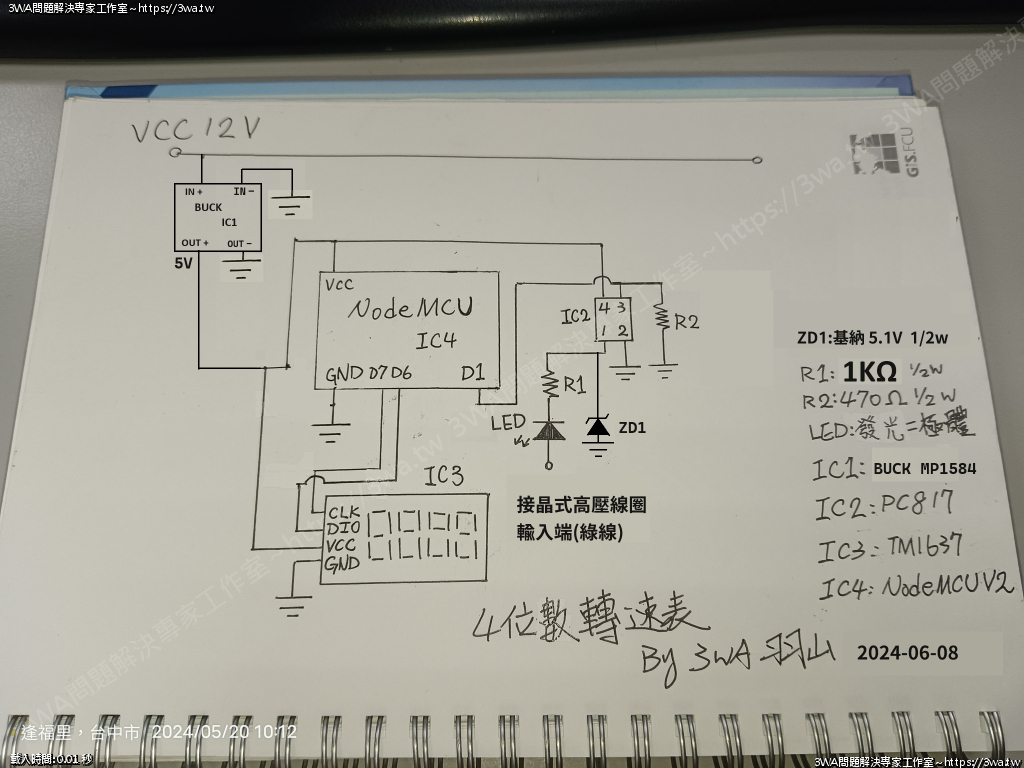 3WA問題解決專家工作室~https://3wa.tw
VCC 12V
GIS.FCU
IN +
IN -
BUCK
IC1
OUT +
OUT -
5V
VCC
NodeMCU
IC4
GND D7 D6
D1
IC2
4 3
1 2
R2
R1
LED
ZD1
IC3
CLK
DIO
VCC
GND
接晶式高壓線圈
輸入端(綠線)
ZD1:基納 5.1V 1/2w
R1: 1KΩ 1/2W
R2:470Ω 1/2W
LED:發光二極體
IC1: BUCK MP1584
IC2: PC817
IC3: TM1637
IC4: NodeMCU V2
4位數轉速表
By 3WA 羽山
2024-06-08
逢福里，台中市 2024/05/20 10:12
載入時間:0.01 秒
3WA問題解決專家工作室~https://3wa.tw
3WA問題解決專家工作室~https://3wa.tw